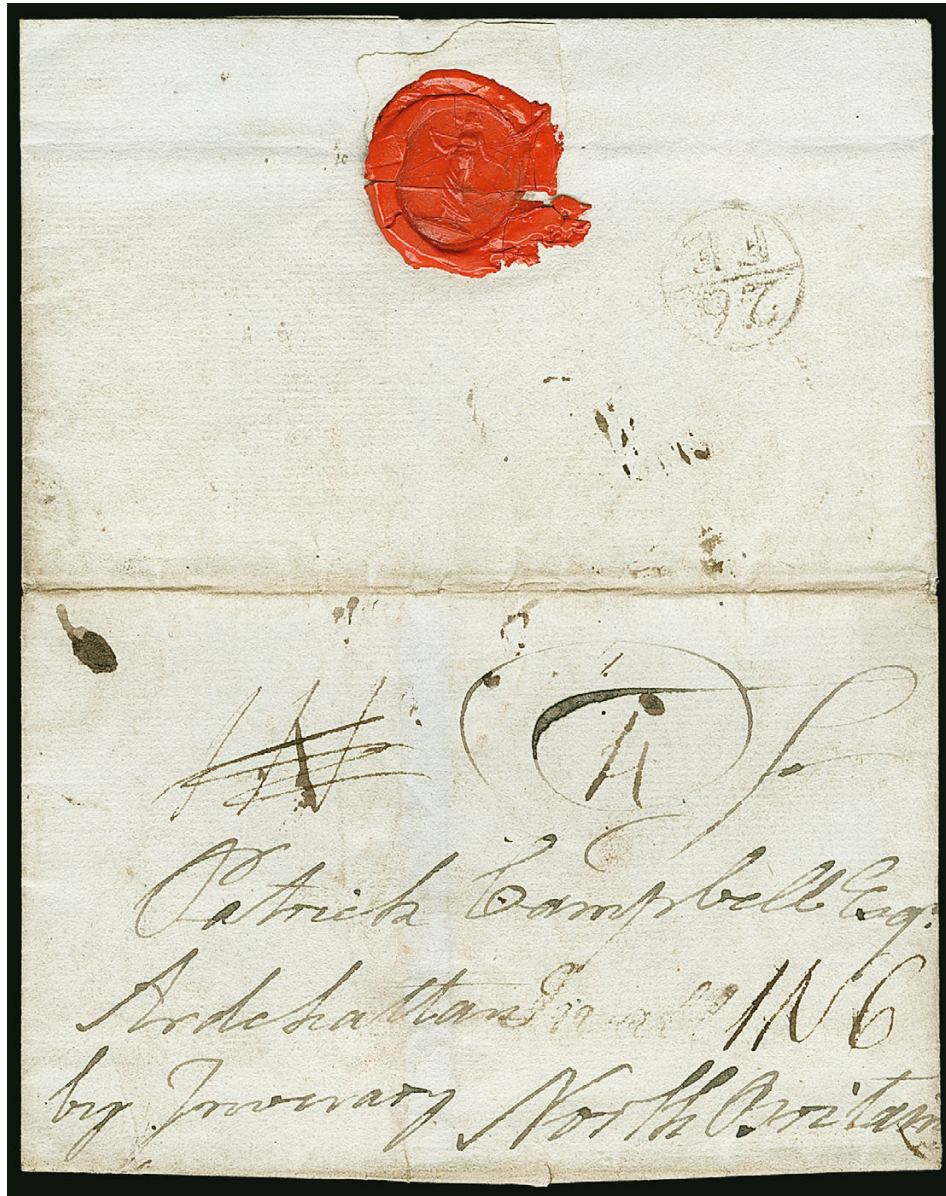 FE
26
To
Patrick Campbell Esqr.
Ardchattan
by Inverary North Britain